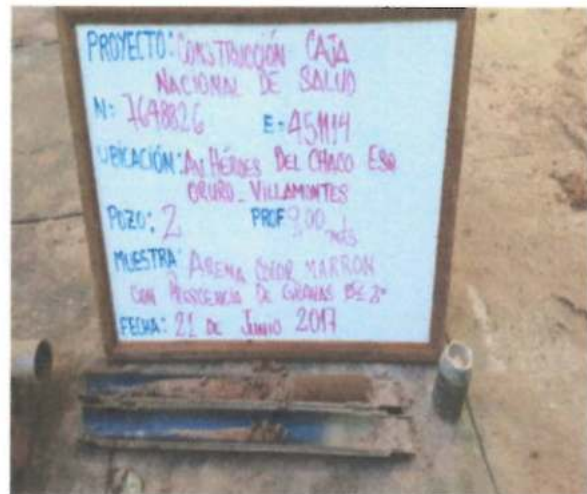 PROYECTO: CONSTRUCCIÓN CAJA
NACIONAL DE SALUD
N: 7648826 E=
UBICACIÓN: AV HÉROES DEL CHACO ESQ
ORURO - VILLAMONTES
POZO: 2 PROF 9,00 mts
MUESTRA: ARENA COLOR MARRON
CON PRESCENCIA DE GRAVAS DE 2"
FECHA: 21 DE JUNIO 2017